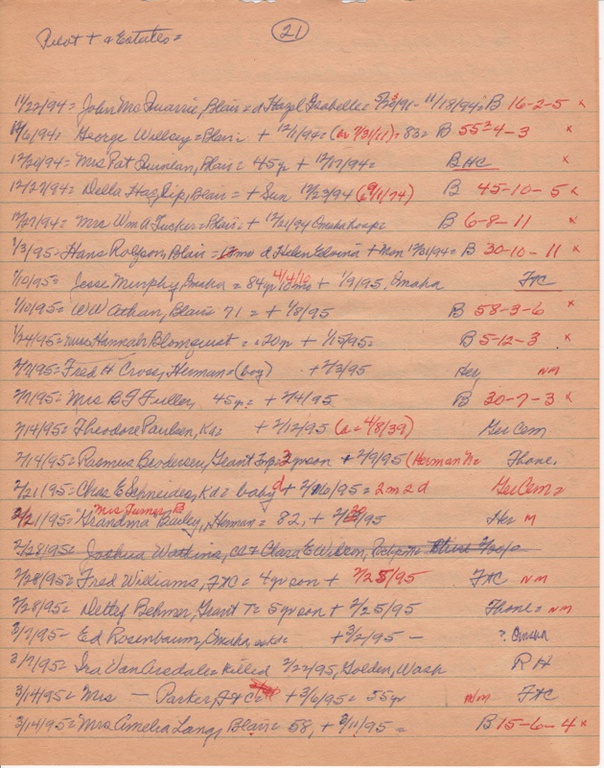 Pilot + & Estates=
21
11/22/94= John McQuarrie, Blair = d Hazel Isabelle= 5/23/91 - 11/18/94= B 16-2-5 x
12/6/94= George Willsey= Blair + 12/1/94= (a= 7/31/11)= 83= B 55 3/4-3 x
12/20/94= Mrs Pat Quinlan, Blair= 45yr + 12/17/94= B HC x
12/27/94= Della Hazlip, Blair= + Sun 12/23/94 (6/1/74) B 45-10-5 x
12/27/94= Mrs Wm A Tucker= Blair= + 12/21/94 Omaha Hosp= B 6-8-11 x
1/3/95= Hans Rolfson, Blair= d Helen + Mon 12/31/94= B 30-10-11 x
1/10/95= Jesse Murphy, Omaha= 84yr 4/4/10 + 1/9/95, Omaha FtC
1/10/95= W W Athan, Blair 71= + 1/8/95 B 58-3-6 x
1/24/95= Miss Hannah Blomquist= =20yr + 1/15/95= B 5-12-3 x
2/7/95= Fred H Cross, Herman= (boy) + 2/3/95 Her NM
2/7/95= Mrs B F Fuller, 45yr= + 2/4/95 B 30-7-3 x
2/14/95= Theodore Paulsen, Ka= + 2/12/95 (a= 4/8/39) Ger Cem.
2/14/95= Rasmus Brodersen, Grant Twp= 2yr son + 2/9/95 (Herman N= Thone.
2/21/95= Chas E Schneider, Kd= baby d + 2/16/95= 2m 2d Ger Cem=
2/21/95= "Grandma Mrs Turner B Bailey, Herman= 82, + 2/20/95 Her M
2/28/95= Joshua Watkins, CC & Clara E Wilson,
2/28/95= Fred Williams, FtC= 4yr son + 2/25/95 FtC NM
2/28/95= Detlef Behmer, Grant T= 5yr son + 2/25/95 Thone= NM
3/7/95= Ed Rosenbaum, Omaha = + 3/2/95 - ? Omaha
3/7/95= Ira Van Arsdale= killed 2/22/95, Golden, Wash RH
3/14/95= Mrs — Parker, FtC + 3/6/95= 55yr NM FtC
3/14/95= Mrs Amelia Lang, Blair= 58, + 3/11/95= B 15-6-4 x